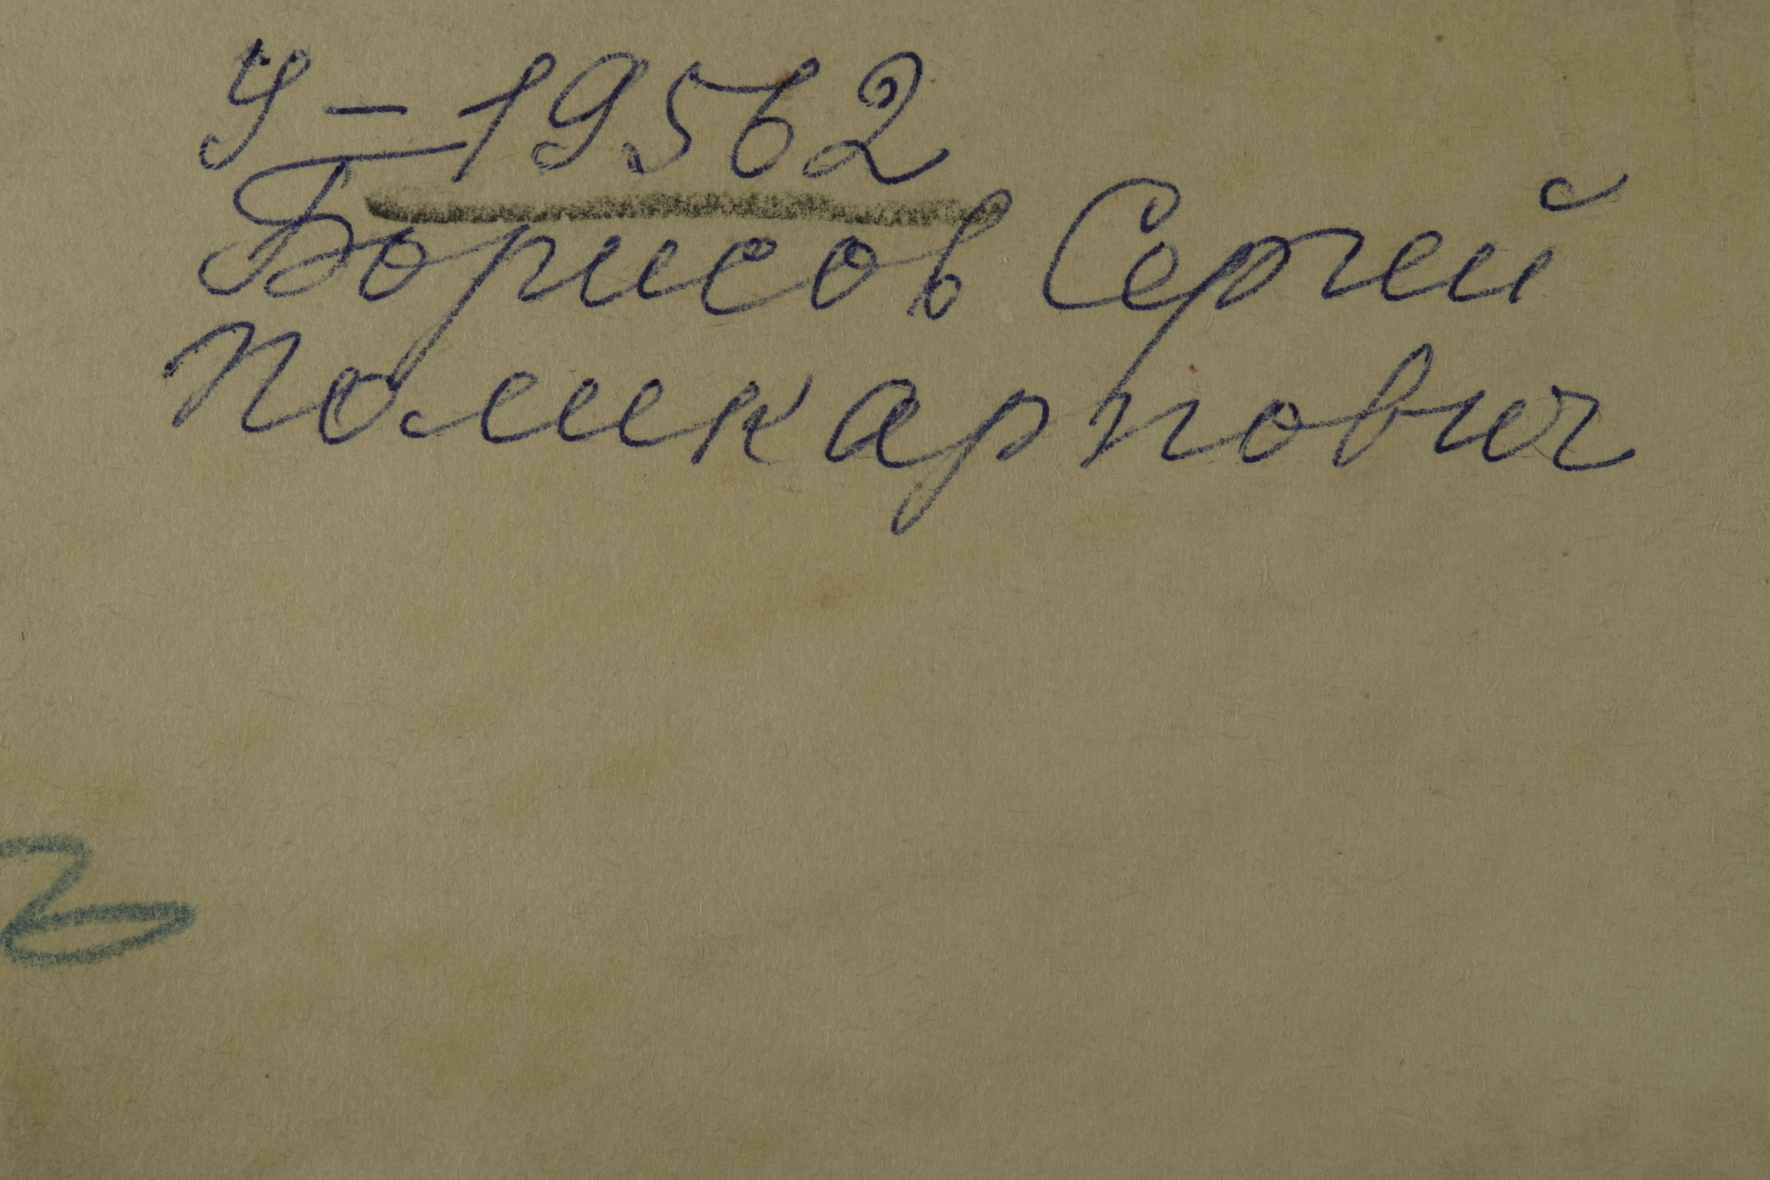 У-19562
Борисов Сергей
Поликарпович